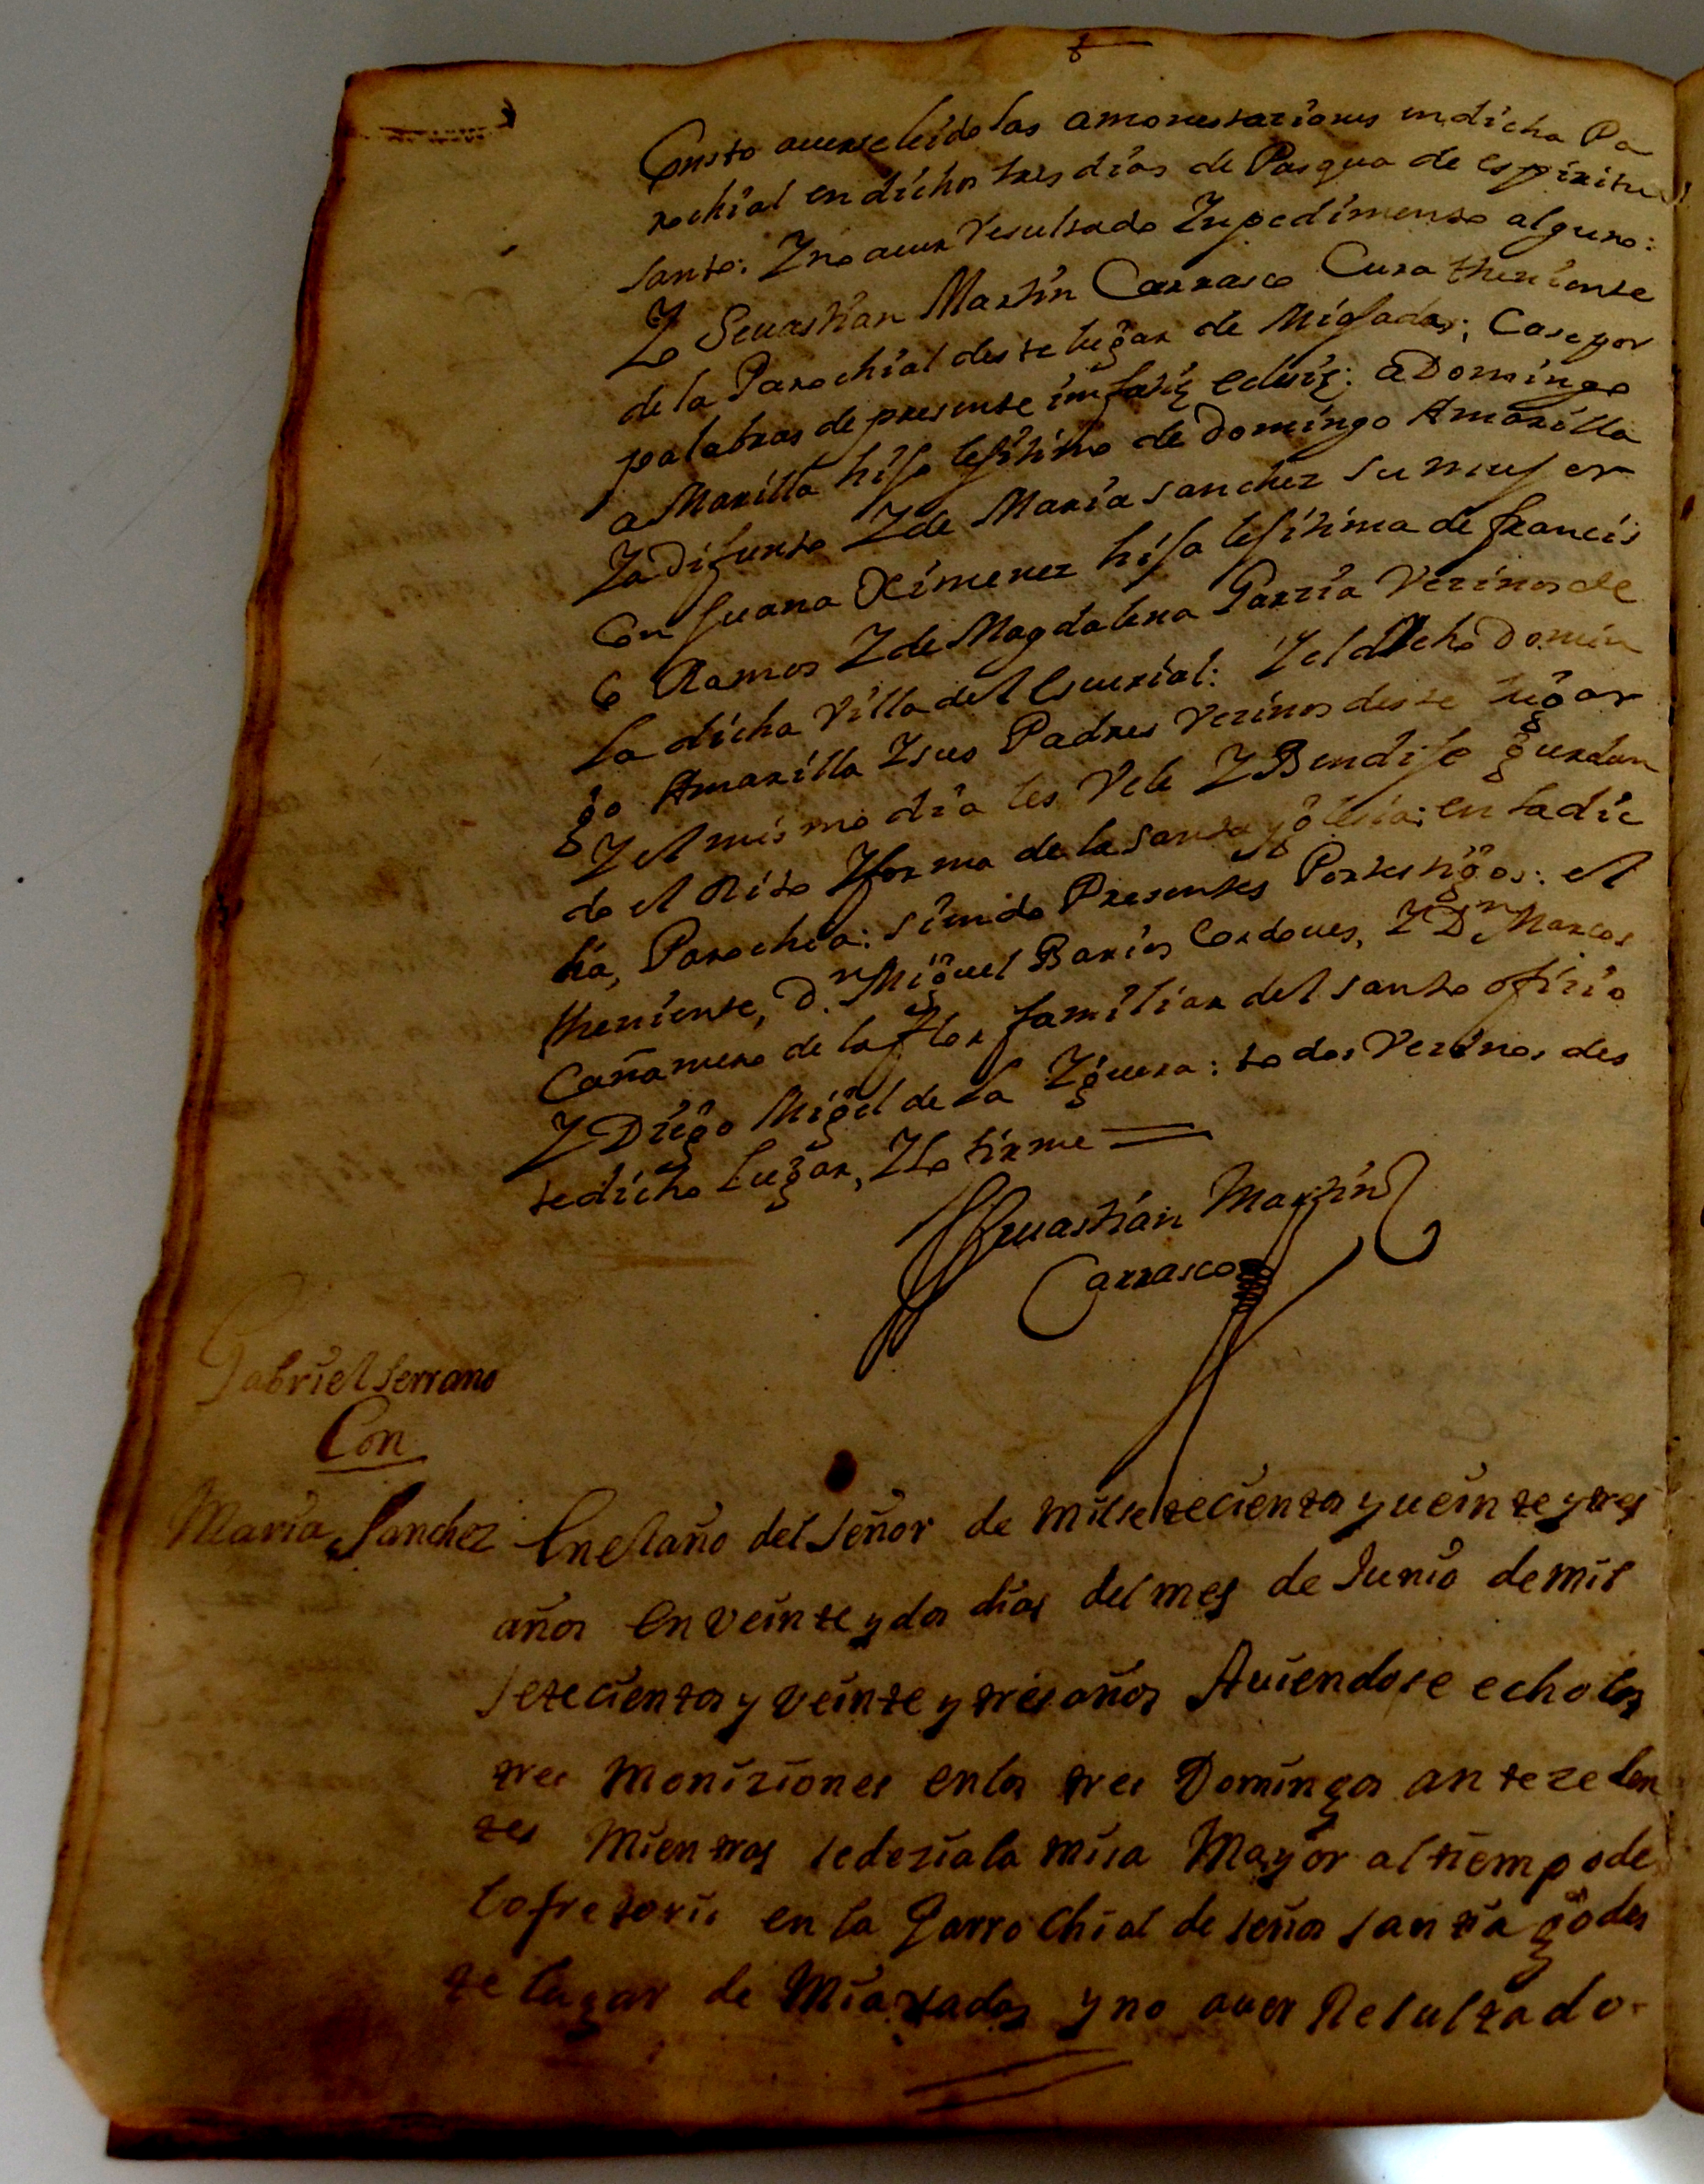 Consto auerse leido las amonestaziones en dicha Pa
rochial en dichos tres dias de Pasqua de espiritu
santo: Y no auer Resultado Ynpedimento alguno:
Yo Seuastian Martin Carrasco Cura theniente
de la Parochial deste lugar de Miajadas; Case por
palabras de presente in facie eclesię: a Domingo
a Marilla hijo lejitimo de Domingo Amarilla
Ya Difunto Y de Maria sanchez su mujer
Con Juana Ximenez hija lejitima de francis
co Ramos Y de Magdalena Garzia Vezinos de
la dicha Villa del Escurial: Y el dicho Domin
go Amarilla Y sus Padres Vezinos deste lugar
Y el mismo dia les Vele Y Bendije guardan
do el Rito Y forma de la santa yglesia: en la dic
ha, Parochia: siendo Presentes Por testigos: el
theniente, D.n Miguel Barios Cordoues, Y Dn Marcos
Cañamero de la flor familiar del santo ofizio
Y Diego Migel de la Yguera: todos Vezinos des
te dicho Lugar, Y lo firme
Seuastian Martin
Carrasco
Gabriel Serrano
Con
Maria Sanchez
En el año del Señor de mil setecientos y ueinte y tres
años en veinte y dos dias del mes de Junio de mil
setecientos y veinte y tres años Auiendose echo las
tres moniziones en los tres Domingos antezeden
tes mientras se dezia la misa Mayor al tiempo de
lofretorio en la Parrochial de señor santiago des
te lugar de Miaxadas y no auer Resultado